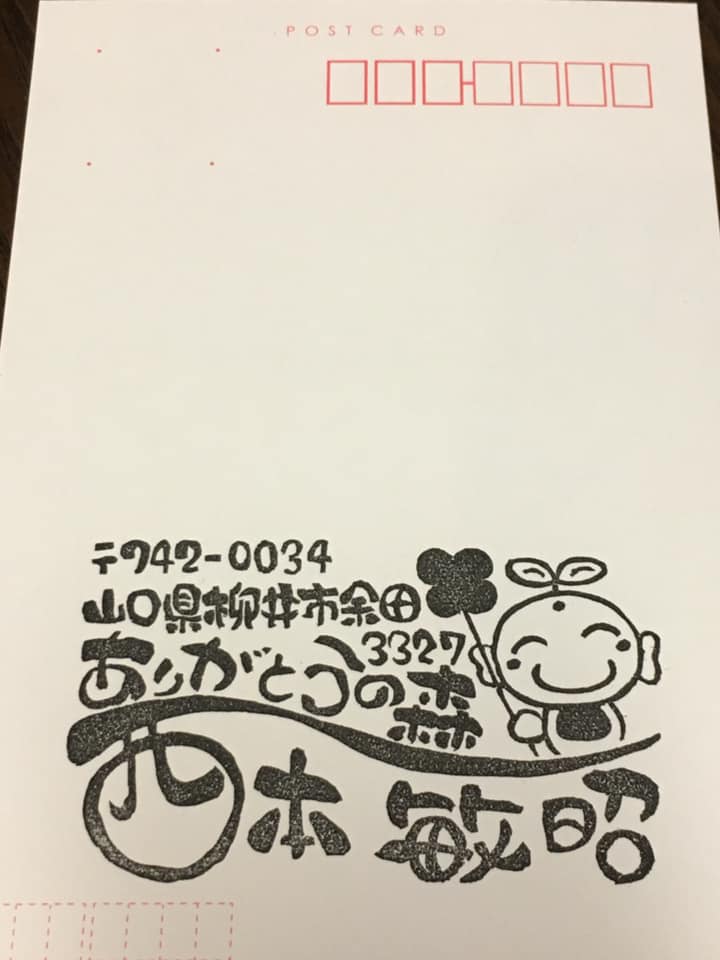 POST CARD
〒742-0034
山口県柳井市余田
3327
ありがとうの森
西本 敏昭